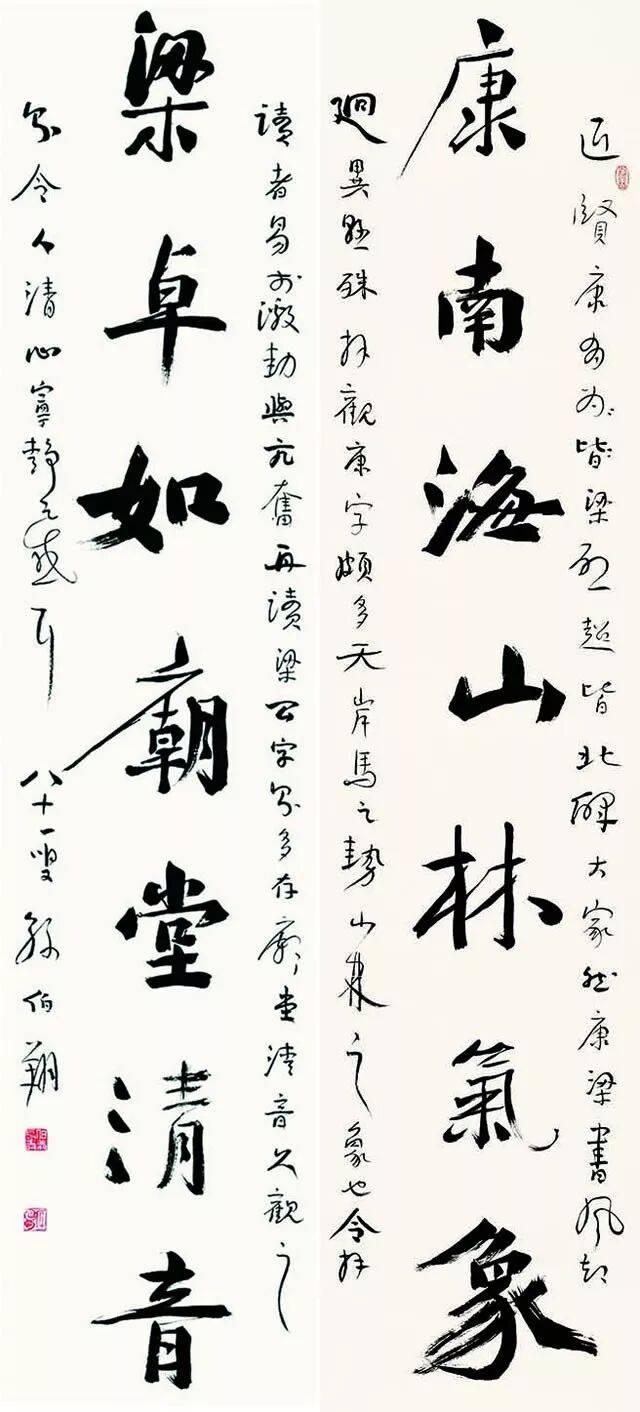 近賢康有为皆梁啟超皆北碑大家然康梁書風却
康南海山林氣象
迥異懸殊拜觀康字頗多天岸馬之勢山林之象也令拜
讀者易於激動與亢奮再讀梁公字則多存廟堂清音久觀之
梁卓如廟堂清音
則令人清心寧靜之感耳 八十一叟孫伯翔